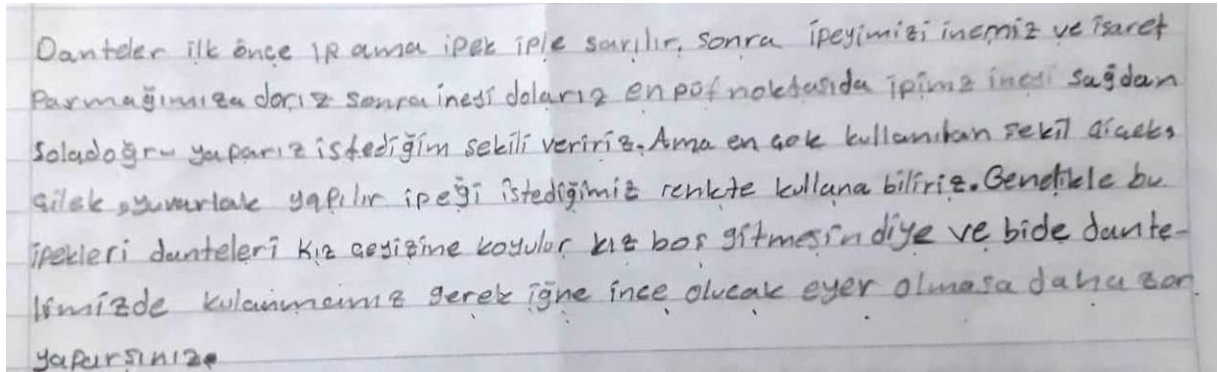 Danteler ilk önce IR ama ipek iple sarılır, sonra ipeyimizi inemiz ve işaret
Parmağımıza dorız sonra inesi dolarız en pof noktasıda ipimz inesi sağdan
Soladoğru yaparız istediğim sekili veririz. Ama en çok kullanılan sekil çiçeks
çilek, yuvurlak yapılır ipeği istediğimiz renkte kullana biliriz. Genelikle bu
ipekleri danteleri kız çeyizine koyulur kız boş gitmesin diye ve bide dante-
limizde kulanmamız gerek iğne ince olucak eyer olmasa daha zor
yaparsınız.